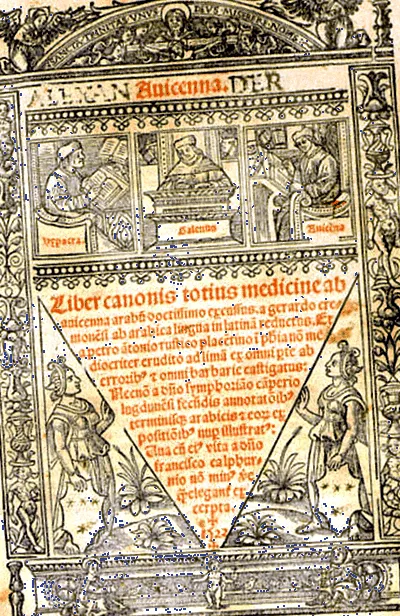 SANCTA TRINITAS VNVS DEVS MISERERE NOB
ALEXAN Auicenna. DER
Yppocra.
Galenus
Auicēna
Liber canonis totius medicine ab
auicenna arabū doctissimo excussus. a gerardo cre
monēsi ab arabica lingua in latinā reductus. Et
a petro ātonio rustico placētino ī phiā nō me
diocriter erudito ad limā ex omni pte ab
erroribꝰ ⁊ omni barbarie castigatus:
Necnō a dño symphoriāo cāperio
lugdunēsi fecūdis annotatōibꝰ
terminisqꝫ arabicis ⁊ eoꝝ ex
positiōibꝰ nup illustratꝰ:
Una cū eiꝰ vita a dño
francisco calphur
nio nō minꝰ
qꝫ eleganť ex
cerpta